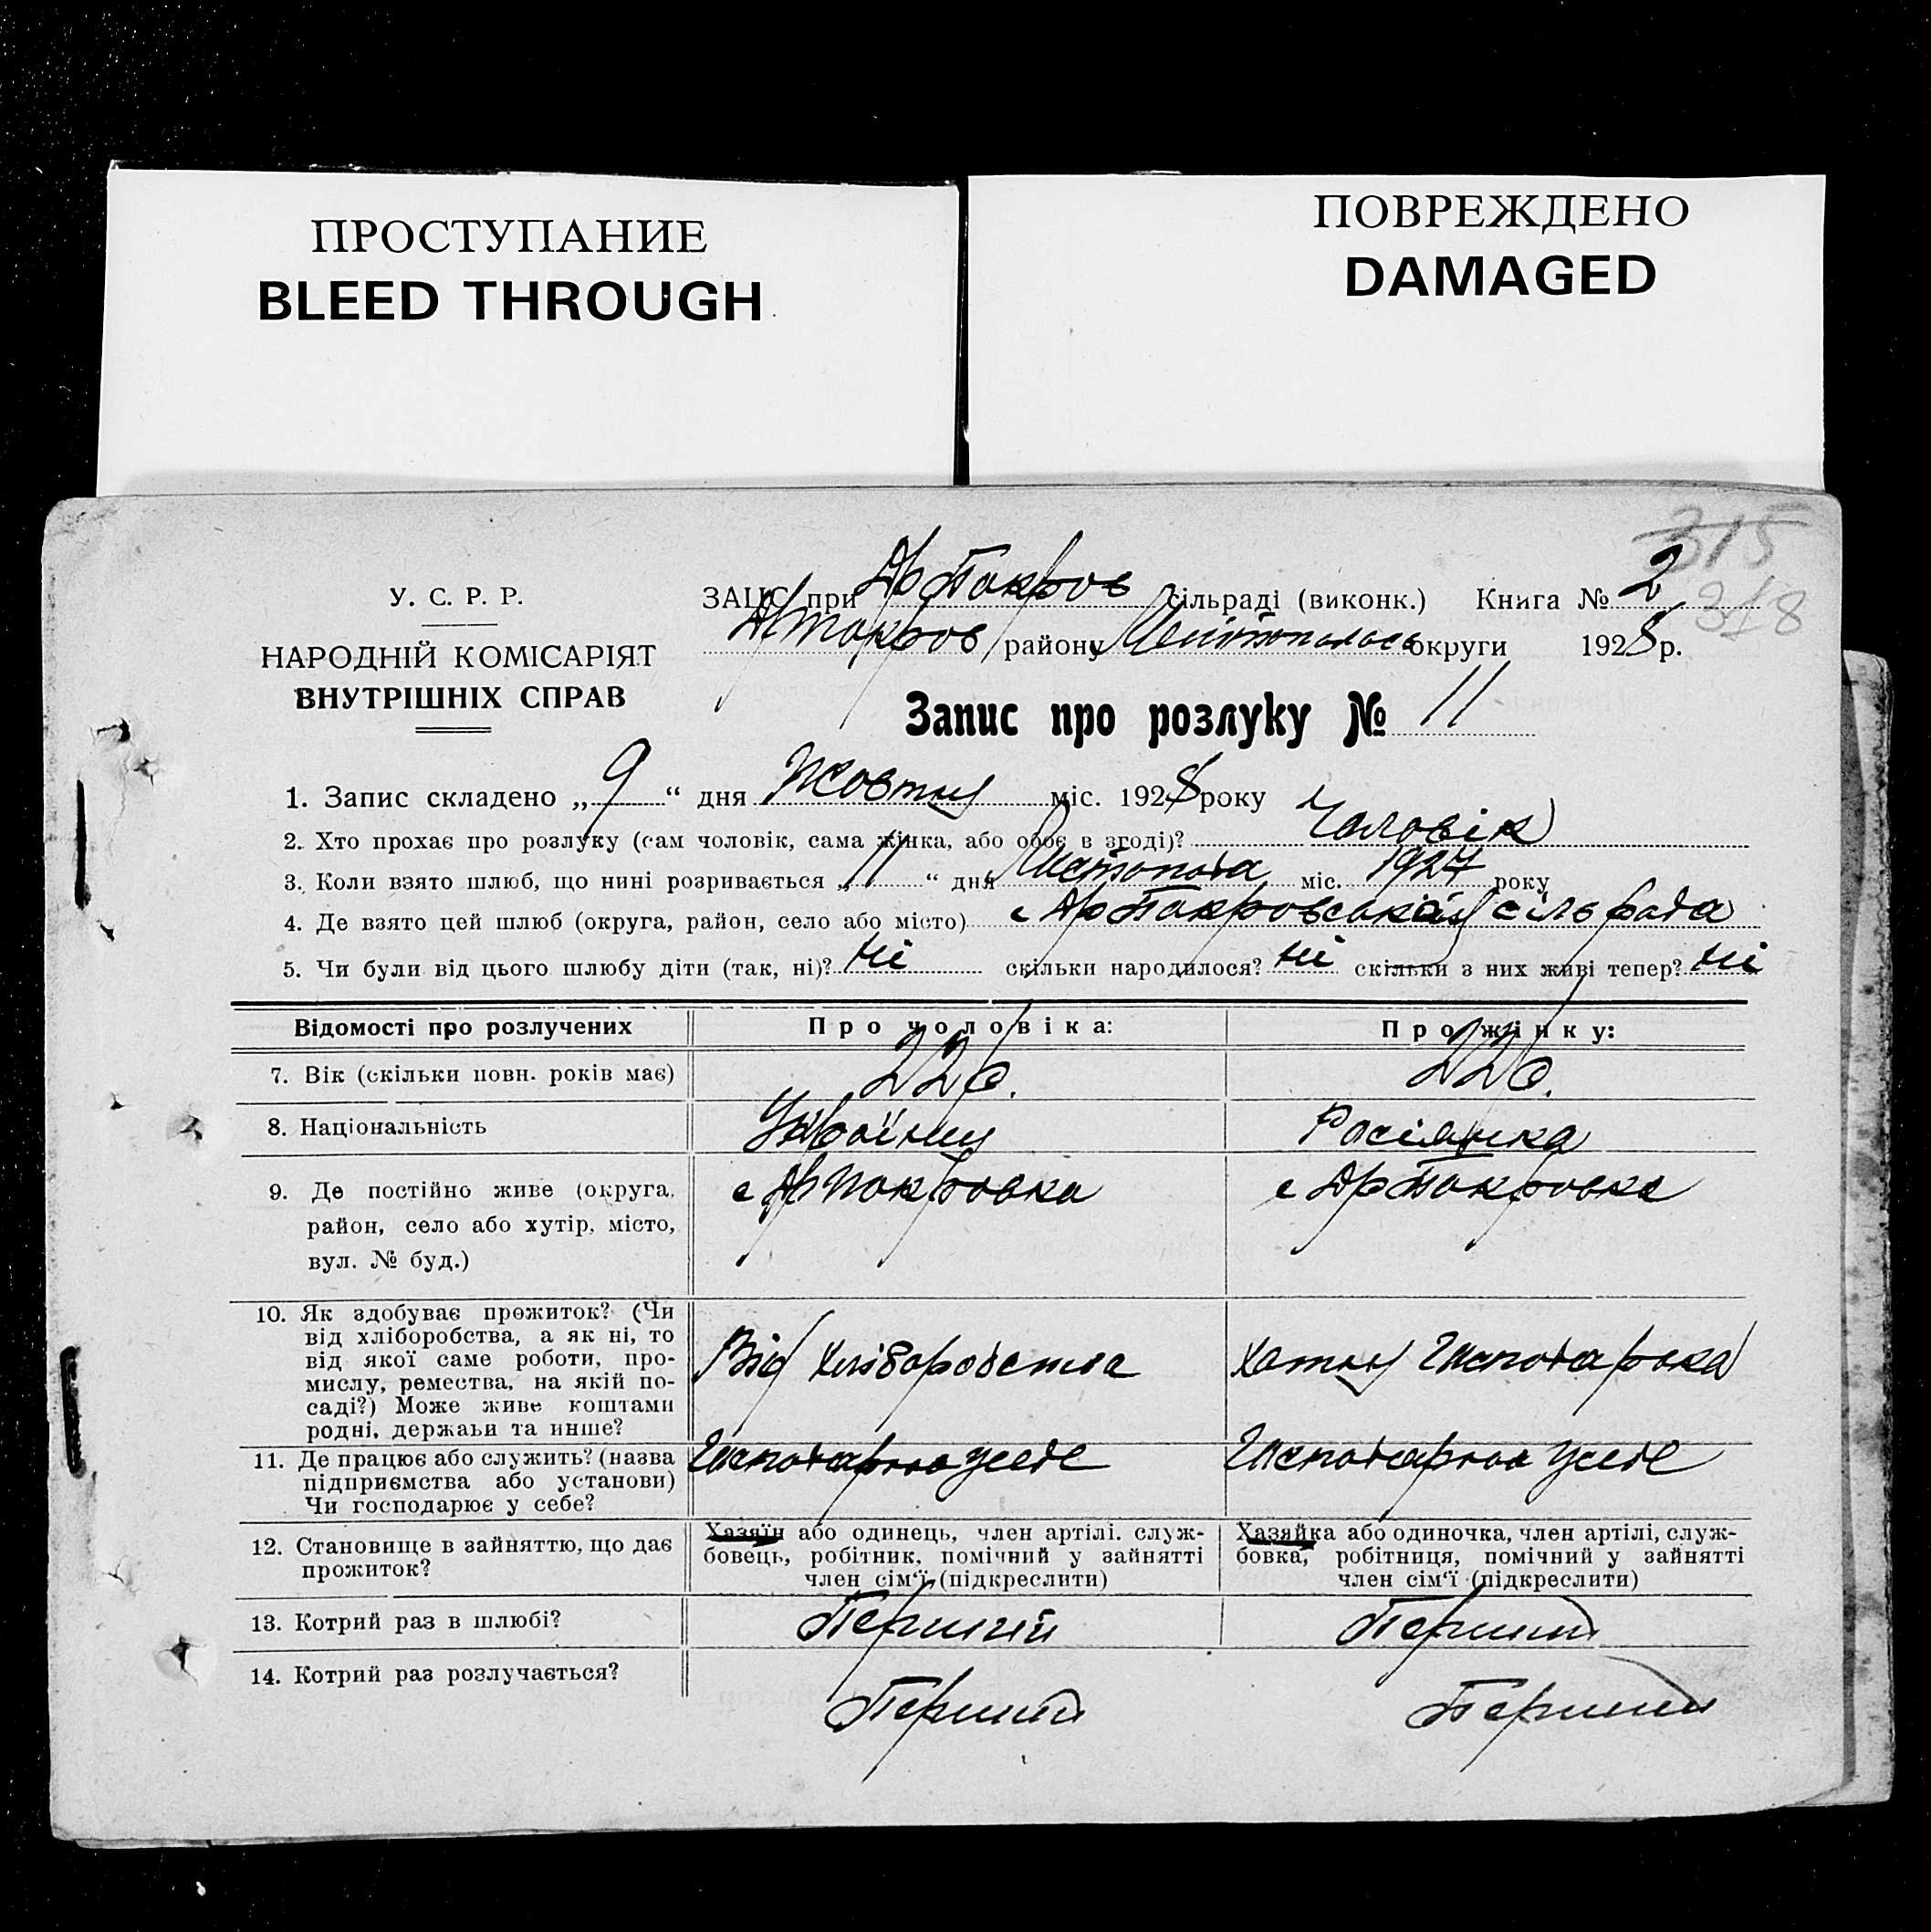 ПРОСТУПАНИЕ
BLEED THROUGH
ПОВРЕЖДЕНО
DAMAGED
315
318
У. С. Р. Р.
НАРОДНІЙ КОМІСАРІЯТ
ВНУТРІШНІХ СПРАВ
ЗАЦС при Др Покров сільраді (виконк.) Книга № 2
Др Покров району округи 1928 р.
Запис про розлуку № 11
1. Запис складено „ 9 “ дня Жовтня міс. 1928 року
2. Хто прохає про розлуку (сам чоловік, сама жінка, або обоє в згоді)? Чоловік
3. Коли взято шлюб, що нині розривається „ 11 “ дня Листопада міс. 1927 року
4. Де взято цей шлюб (округа, район, село або місто) с Др Покровській сільрада
5. Чи були від цього шлюбу діти (так, ні)? ні скільки народилося? ні скільки з них живі тепер? ні
Відомості про розлучених Про чоловіка: Про жінку:
7. Вік (скільки повн. років має) 22 р. 22 р.
8. Національність Українец Росіянка
9. Де постійно живе (округа, с Др Покровка с Др Покровка
район, село або хутір, місто,
вул. № буд.)
10. Як здобуває прожиток? (Чи
від хліборобства, а як ні, то
від якої саме роботи, про- Від хліборобства Хатня Господарока
мислу, ремества, на якій по-
саді?) Може живе коштами
родні, держави та инше?
11. Де працює або служить? (назва Господарює усебе Господарює усебе
підприємства або установи)
Чи господарює у себе?
12. Становище в зайняттю, що дає
прожиток?
Хазяїн або одинець, член артілі, служ-
бовець, робітник, помічний у зайнятті
член сім‘ї (підкреслити)
Хазяйка або одиночка, член артілі, служ-
бовка, робітниця, помічний у зайнятті
член сім‘ї (підкреслити)
13. Котрий раз в шлюбі? Перший Перший
14. Котрий раз розлучається? Перший Перший